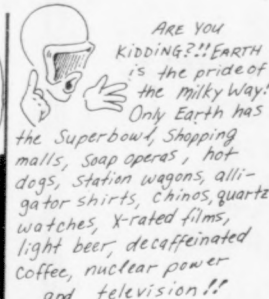 ARE YOU
KIDDING?!! EARTH
is the pride of
the milky Way!
Only Earth has
the Superbowl, Shopping
malls, Soap operas, hot
dogs, Station wagons, alli-
gator shirts, chinos, quartz
watches, X-rated films,
light beer, decaffeinated
coffee, nuclear power
and television !!